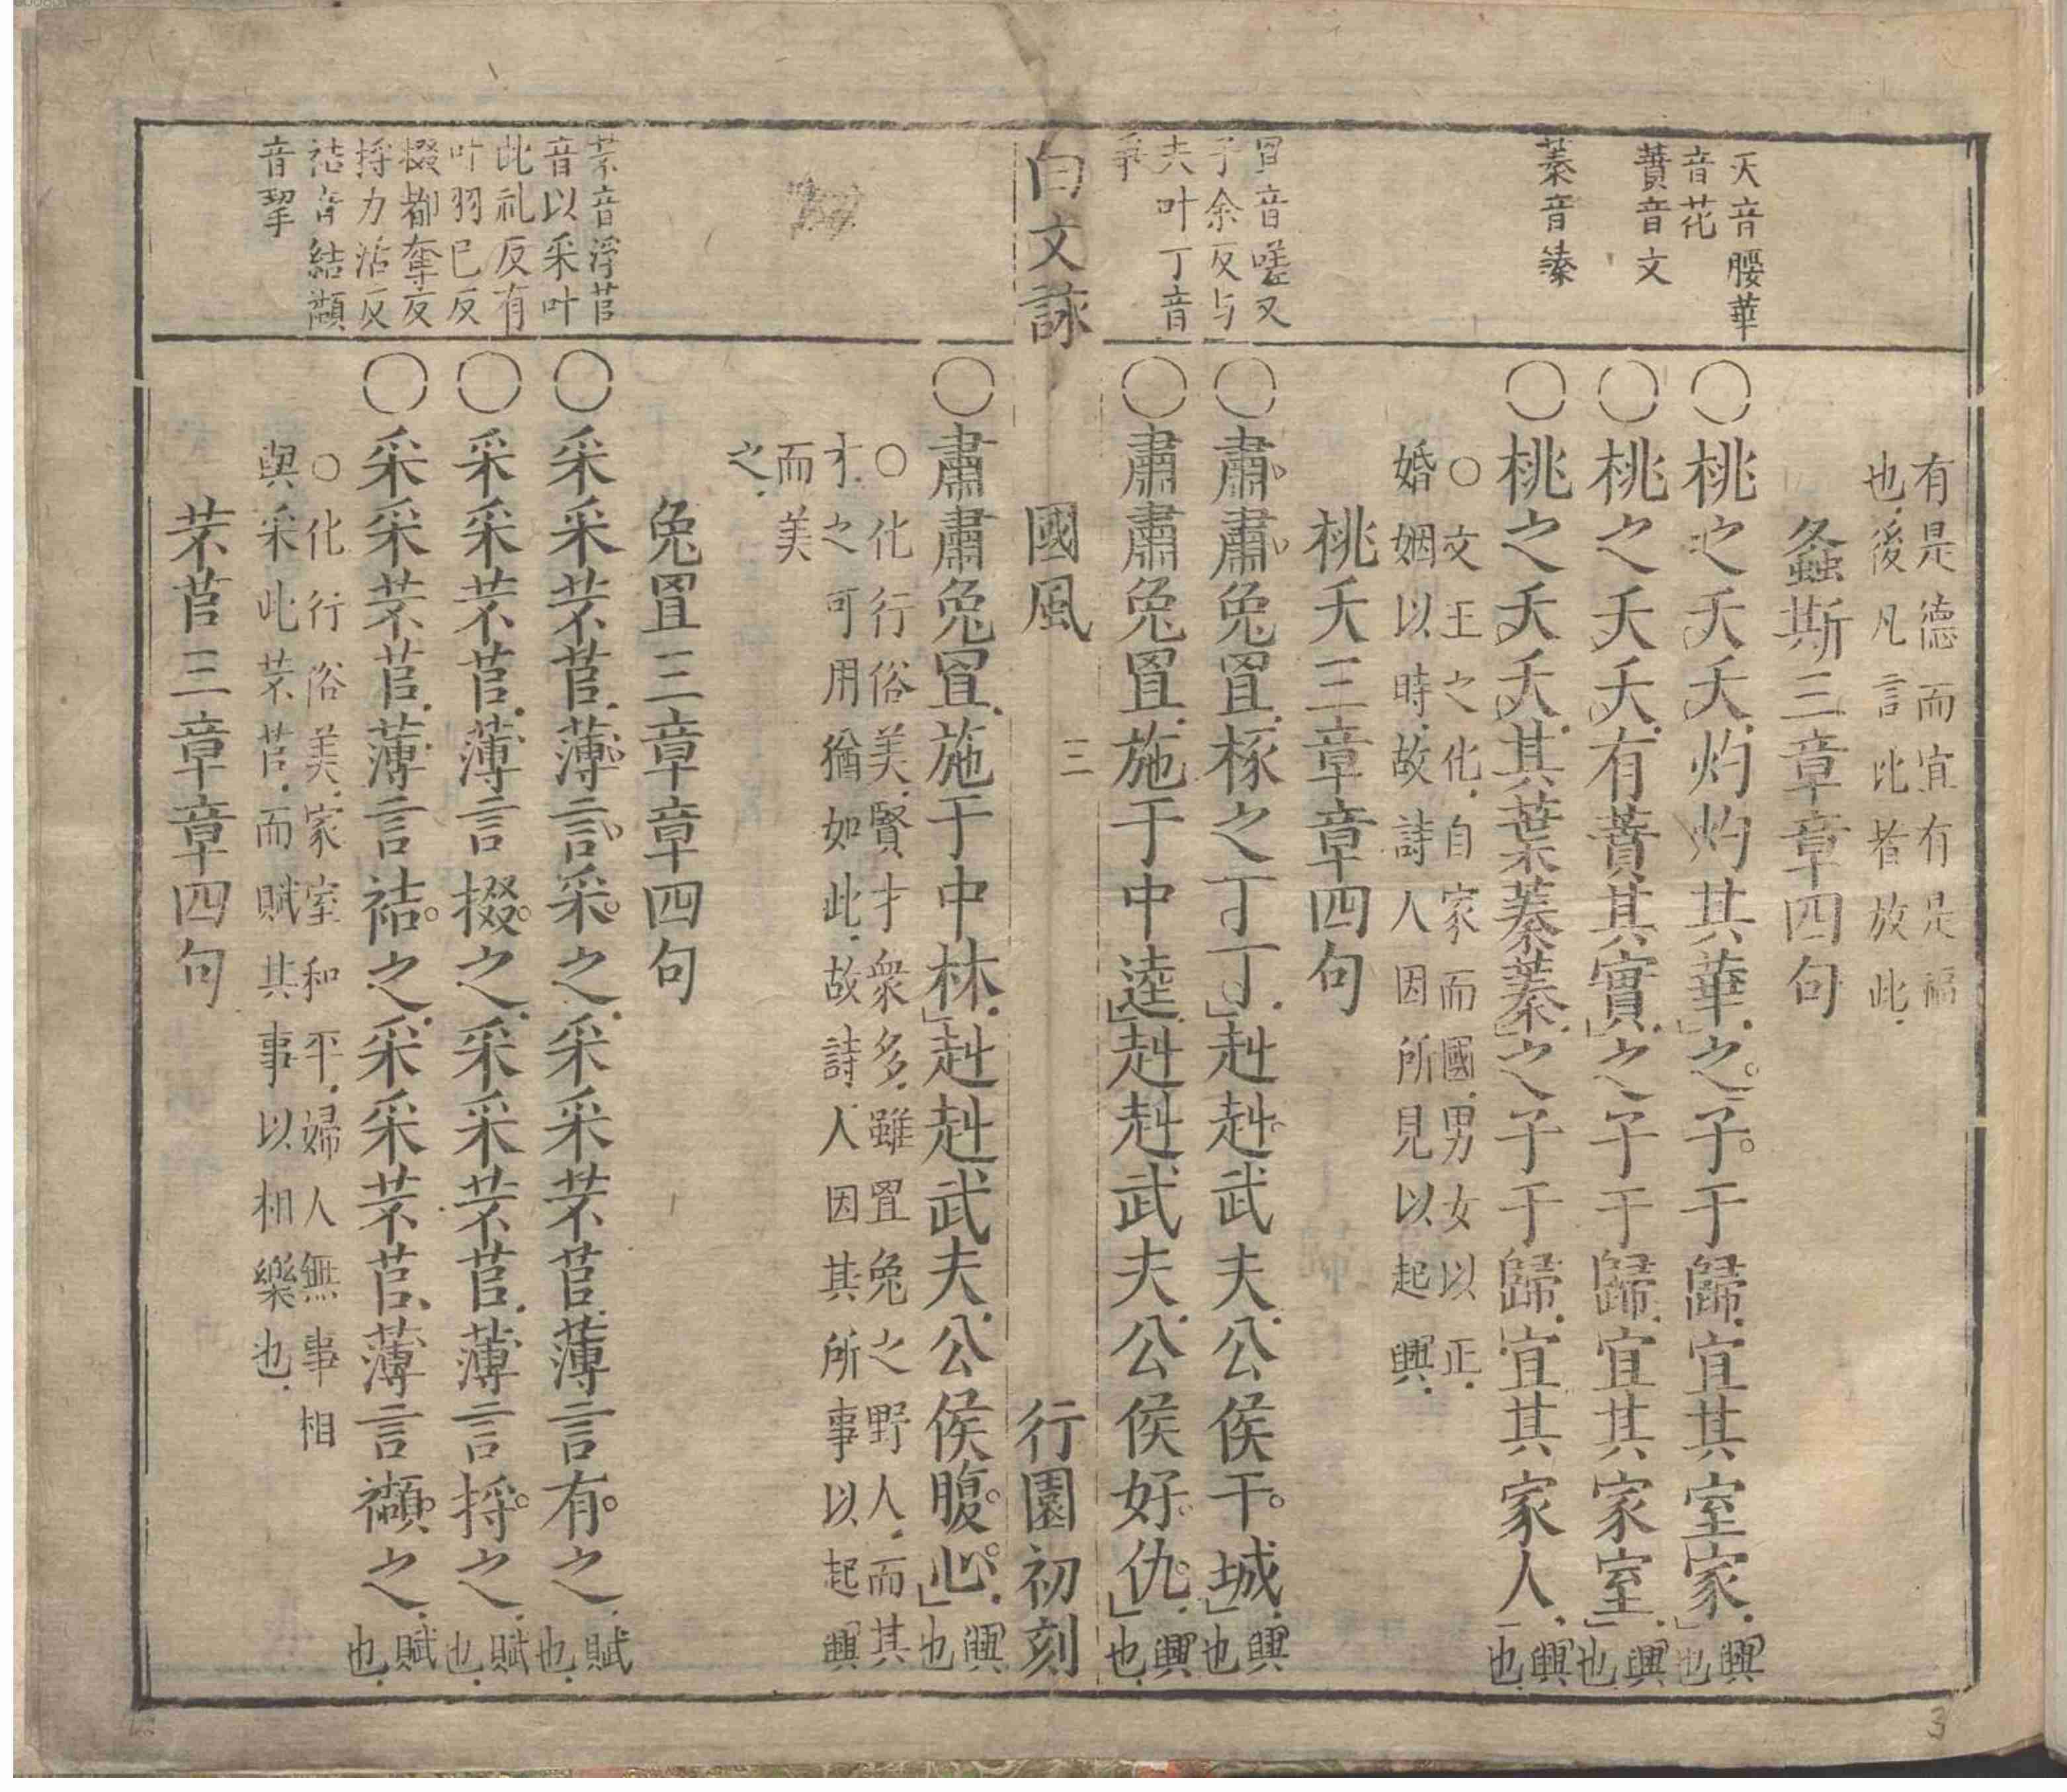 夭音腰華
音花
蕡音文
蓁音溱
有是德而宜有是福
也後凡言比者放此
螽斯三章章四句
○桃之夭夭灼灼其華之子于歸宜其室家興也
○桃之夭夭有蕡其實之子于歸宜其家室興也
○桃之夭夭其葉蓁蓁之子于歸宜其家人興也
○文王之化自家而國男女以正
婚姻以時故詩人因所見以起興
桃夭三章章四句
罝音嗟又
子余反与
夫叶丁音
爭
○肅肅兔罝椓之丁丁赳赳武夫公侯干城興也
○肅肅兔罝施于中逵赳赳武夫公侯好仇興也
白文詠 國風 三 行園初刻
○肅肅兔罝施于中林赳赳武夫公侯腹心興也
○化行俗美賢才衆多雖罝兔之野人而其
才之可用猶如此故詩人因其所事以起興
而美
之
兔罝三章章四句
芣音浮苢
音以采叶
此礼反有
叶羽已反
掇都奪反
捋力活反
袺音結襭
音挈
○采采芣苢薄言采之采采芣苢薄言有之賦也
○采采芣苢薄言掇之采采芣苢薄言捋之賦也
○采采芣苢薄言袺之采采芣苢薄言襭之賦也
○化行俗美家室和平婦人無事相
與采此芣苢而賦其事以相樂也
芣苢三章章四句
3